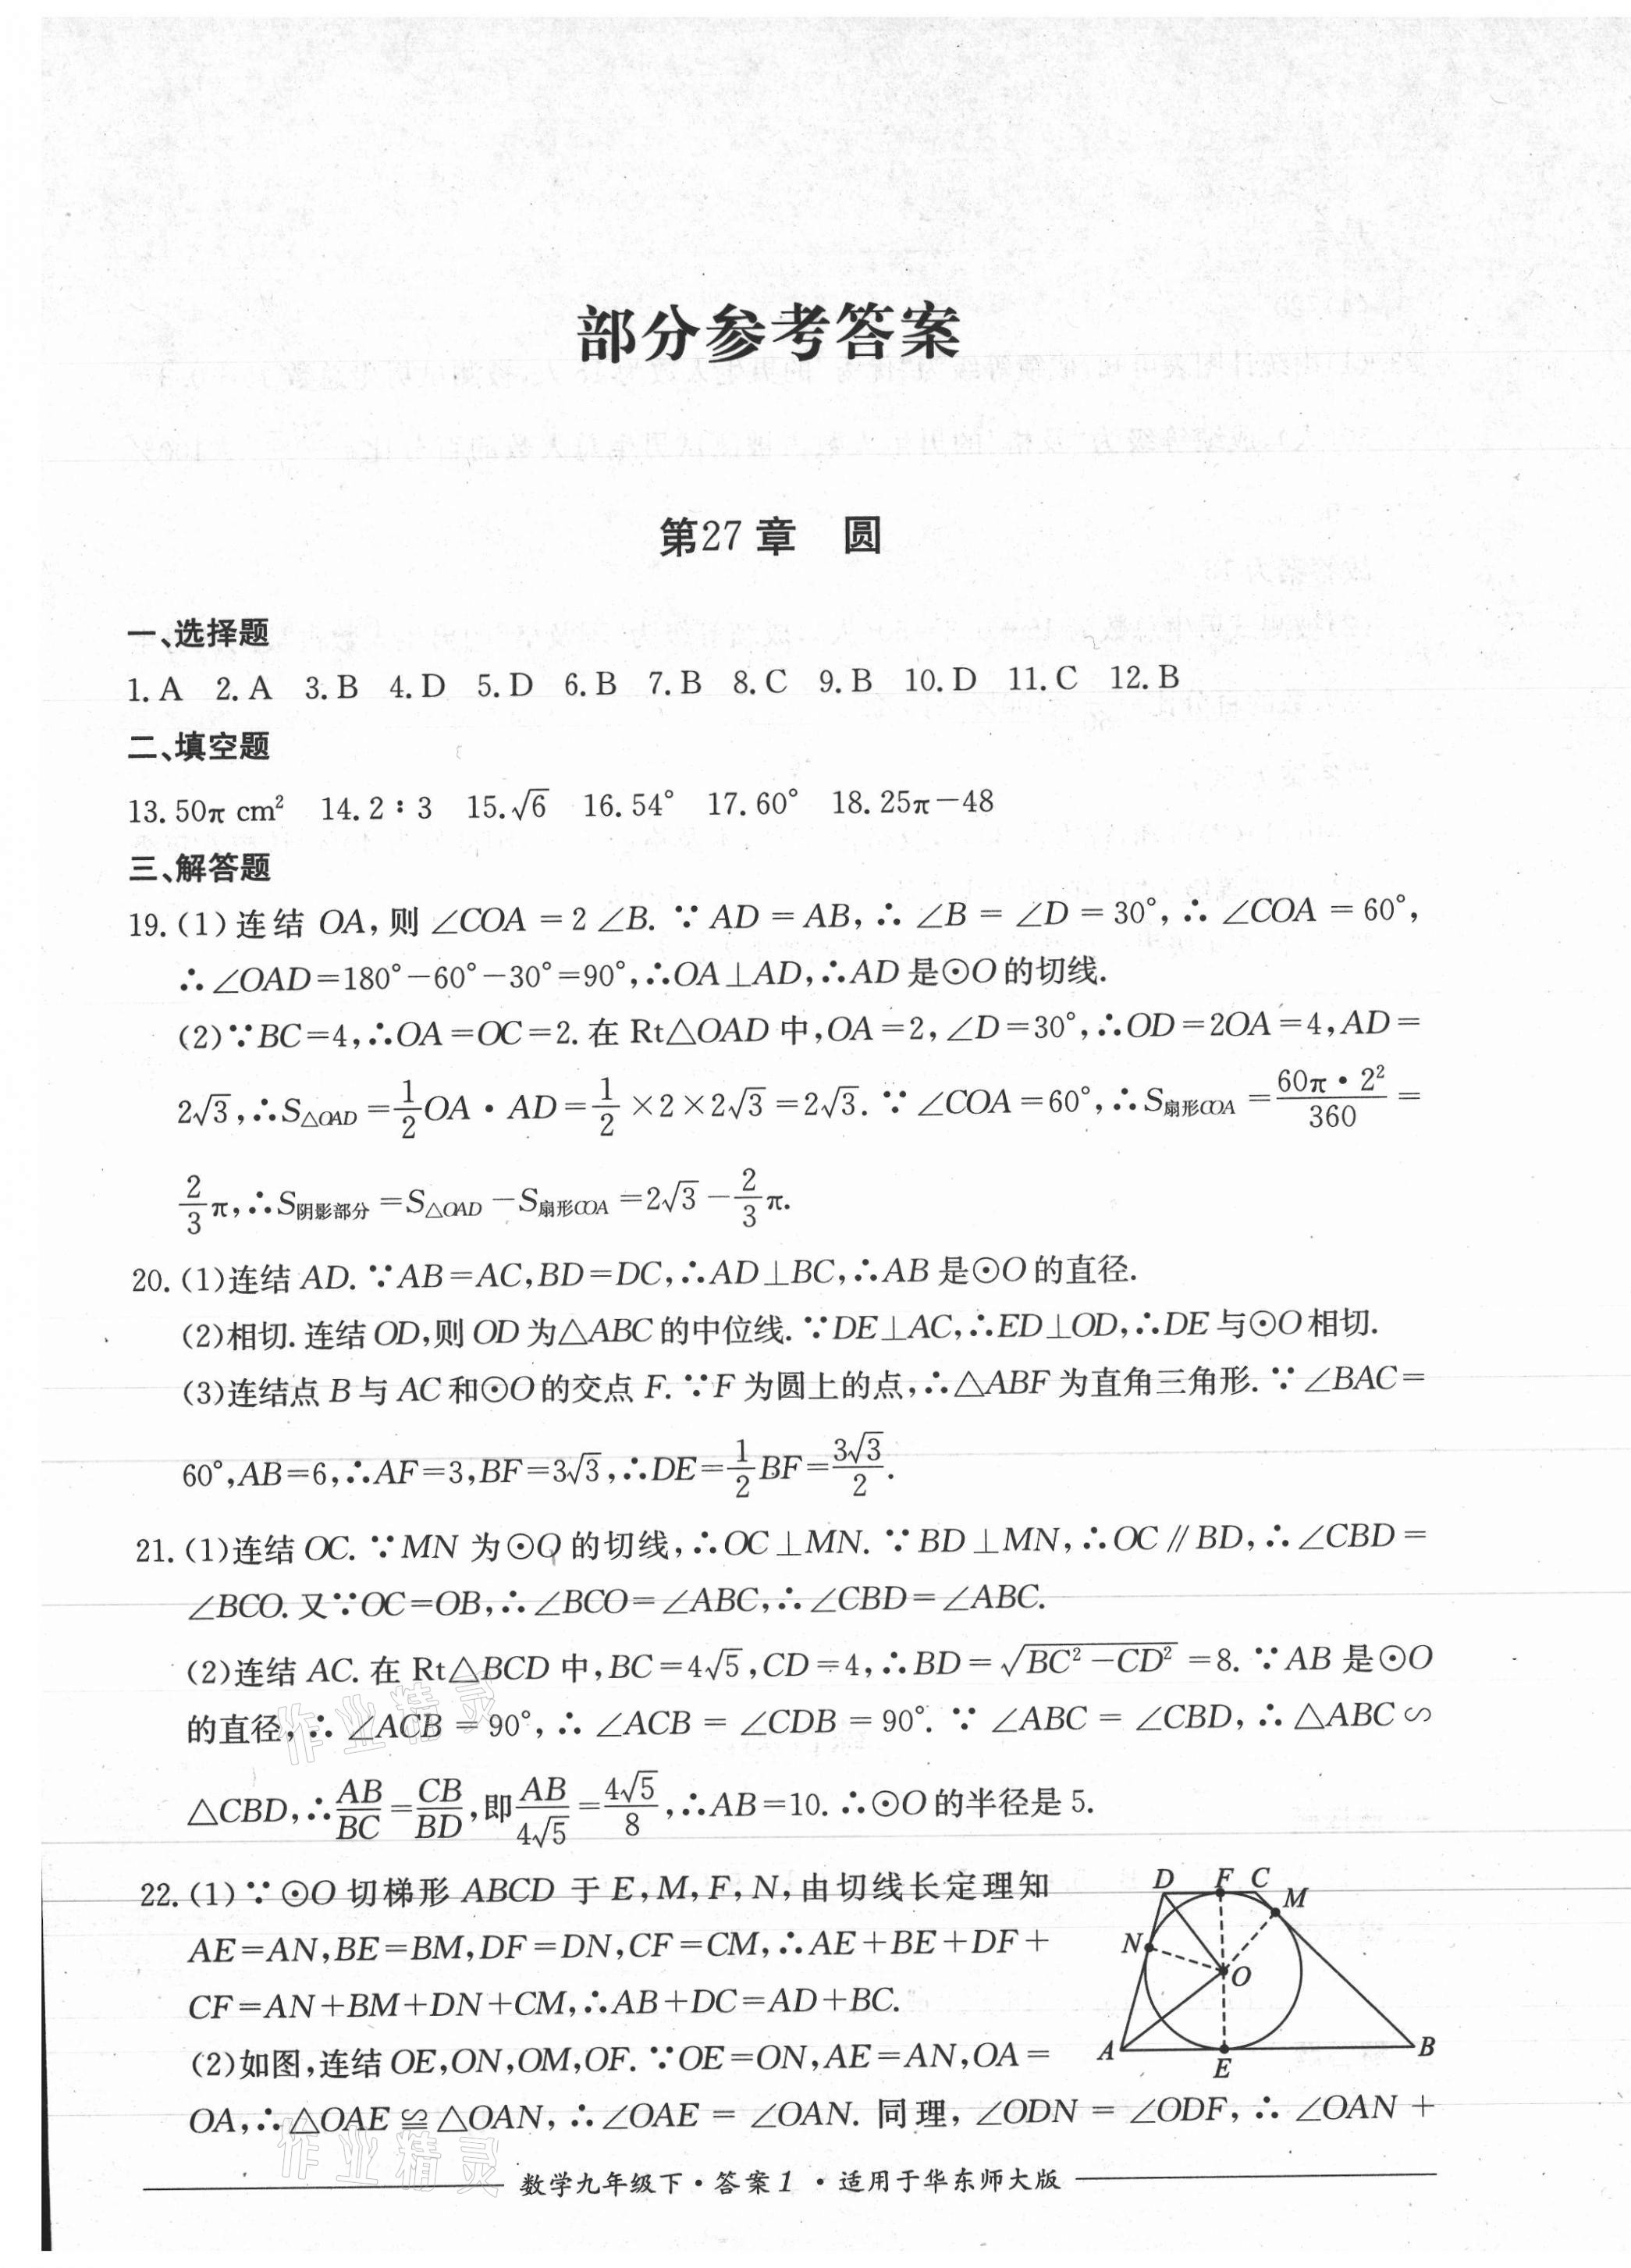 部分参考答案
第27章　圆
一、选择题
1. A 2. A 3. B 4. D 5. D 6. B 7. B 8. C 9. B 10. D 11. C 12. B
二、填空题
13. 50π cm² 14. 2∶3 15. √6 16. 54° 17. 60° 18. 25π－48
三、解答题
19. (1)连结 OA,则 ∠COA = 2 ∠B. ∵ AD = AB, ∴ ∠B = ∠D = 30°, ∴ ∠COA = 60°,
∴ ∠OAD=180°－60°－30°=90°,∴OA⊥AD,∴AD 是⊙O 的切线.
(2)∵BC=4,∴OA=OC=2. 在 Rt△OAD 中,OA=2,∠D=30°,∴OD=2OA=4,AD=
2√3,∴S△OAD=1/2 OA·AD=1/2×2×2√3=2√3. ∵ ∠COA=60°,∴S扇形COA=60π·2²/360=
2/3 π,∴S阴影部分=S△OAD－S扇形COA=2√3－2/3 π.
20. (1)连结 AD. ∵AB=AC,BD=DC,∴AD⊥BC,∴AB 是⊙O 的直径.
(2)相切. 连结 OD,则 OD 为△ABC 的中位线. ∵DE⊥AC,∴ED⊥OD,∴DE 与⊙O 相切.
(3)连结点 B 与 AC 和⊙O 的交点 F. ∵F 为圆上的点,∴△ABF 为直角三角形. ∵ ∠BAC=
60°,AB=6,∴AF=3,BF=3√3,∴DE=1/2 BF=3√3/2.
21. (1)连结 OC. ∵MN 为⊙O 的切线,∴OC⊥MN. ∵BD⊥MN,∴OC∥BD,∴∠CBD=
∠BCO. 又∵OC=OB,∴∠BCO=∠ABC,∴∠CBD=∠ABC.
(2)连结 AC. 在 Rt△BCD 中,BC=4√5,CD=4,∴BD=√(BC²－CD²)=8. ∵AB 是⊙O
的直径,∴ ∠ACB = 90°, ∴ ∠ACB = ∠CDB = 90°. ∵ ∠ABC = ∠CBD, ∴ △ABC∽
△CBD,∴AB/BC=CB/BD,即AB/4√5=4√5/8,∴AB=10. ∴⊙O 的半径是 5.
22. (1)∵⊙O 切梯形 ABCD 于 E,M,F,N,由切线长定理知
AE=AN,BE=BM,DF=DN,CF=CM,∴AE+BE+DF+
CF=AN+BM+DN+CM,∴AB+DC=AD+BC.
(2)如图,连结 OE,ON,OM,OF. ∵OE=ON,AE=AN,OA=
OA,∴△OAE≌△OAN,∴∠OAE = ∠OAN. 同理, ∠ODN = ∠ODF, ∴ ∠OAN +
D F C
M
N
O
A
E
B
作业精灵
作业精灵
数学九年级下·答案1·适用于华东师大版